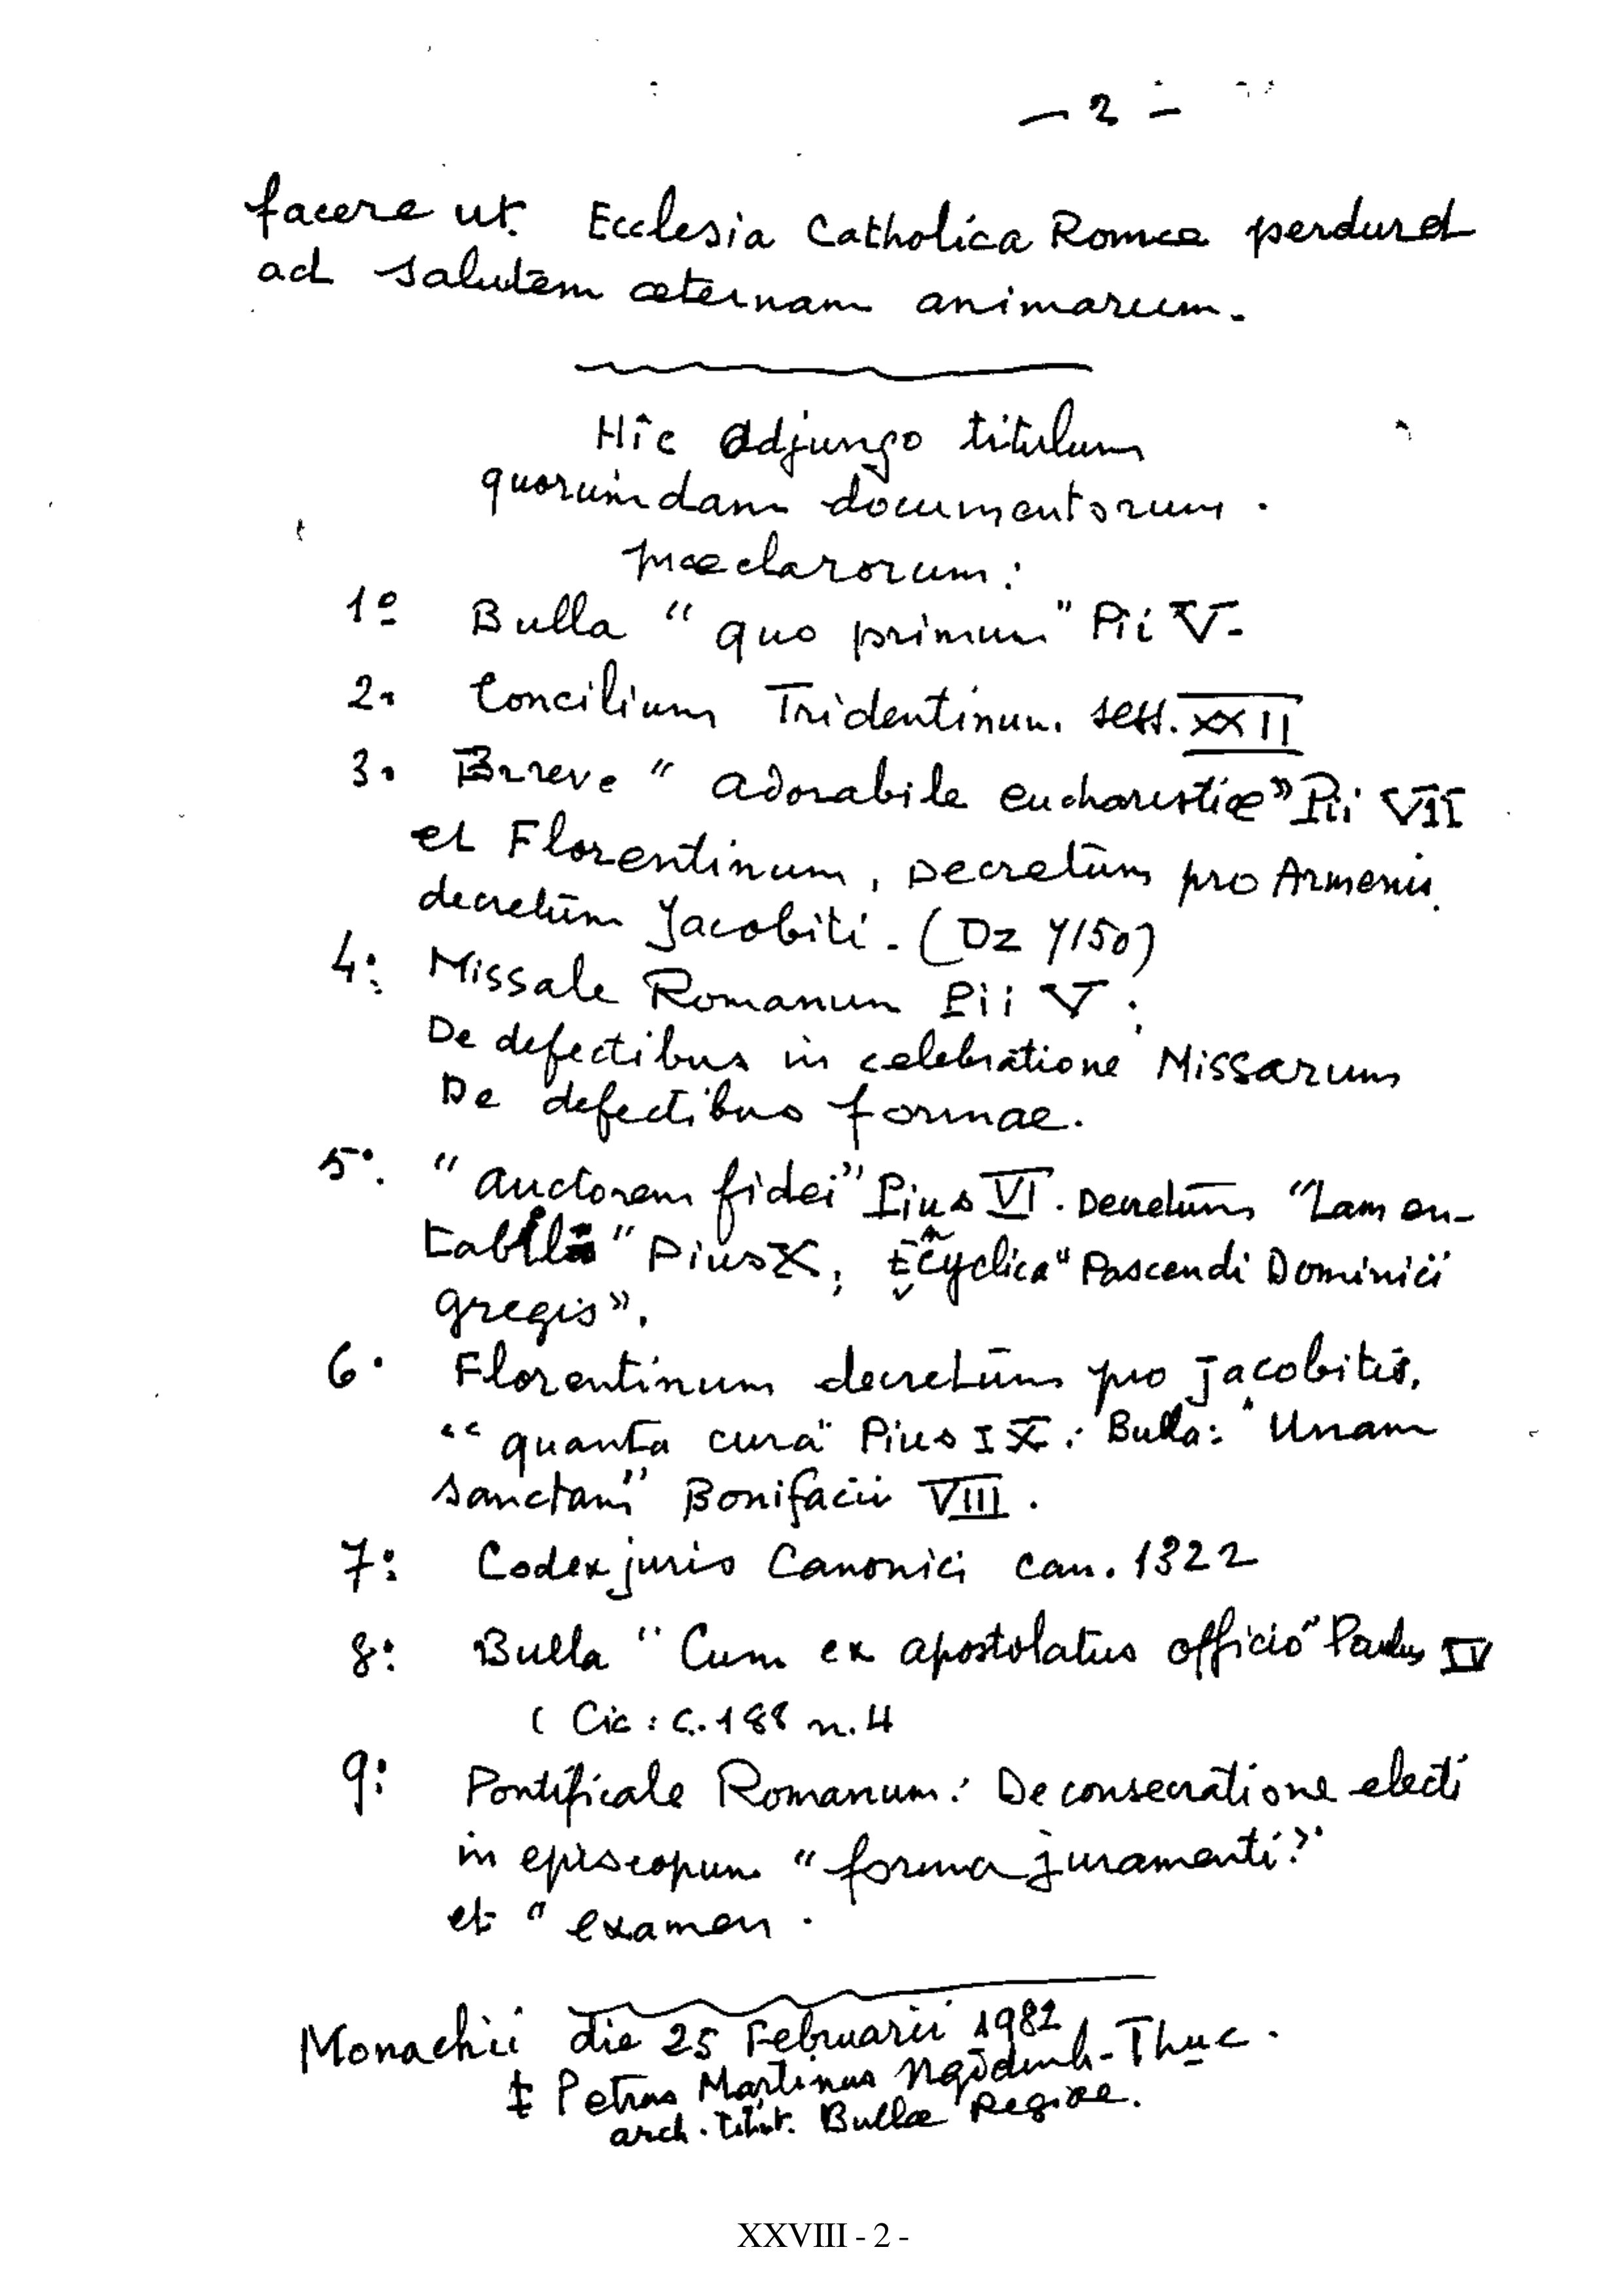 – 2 –
facere ut Ecclesia Catholica Romæ perduret
ad salutem æternam animarum.
Hîc adjungo titulum
quorumdam documentorum
præclarorum:
1º Bulla “quo primum” Pii V.
2. Concilium Tridentinum sess. XXII
3. Breve “adorabile eucharistiæ” Pii VII
et Florentinum, Decretum pro Armenis
decretum Jacobiti. (Dz 715°)
4: Missale Romanum Pii V;
De defectibus in celebratione Missarum
De defectibus formae.
5°. “auctorem fidei” Pius VI. Decretum “Lamen-
tabili” Pius X, Ecyclica “Pascendi Dominici
gregis”.
6. Florentinum decretum pro Jacobitis,
“quanta cura” Pius IX: Bulla: “Unam
sanctam” Bonifacii VIII.
7: Codex juris Canonici can. 1322
8: Bulla “Cum ex apostolatus officio” Paulus IV
( Cic: c. 188 n. 4
9: Pontificale Romanum: De consecratione electi
in episcopum “forma juramenti”
et “examen.
Monachii die 25 Februarii 1982
‡ Petrus Martinus Ngôdinh-Thuc.
arch. titul. Bullæ Regiæ.
XXVIII - 2 -